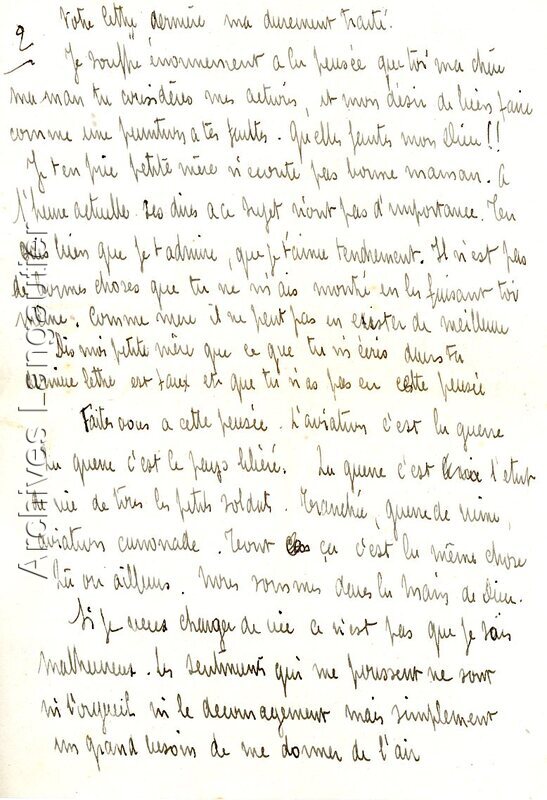 2
Votre lettre dernière m'a durement traité.
Je souffre énormément a la pensée que toi ma chère
maman tu considères mes actions, et mon désir de bien faire
comme une punition a tes fautes. Quelles fautes mon Dieu !!
Je t'en prie petite mère n'écoute pas bonne maman. A
l'heure actuelle ses dires a ce sujet n'ont pas d'importance. Tu
sais bien que je t'admire, que je t'aime tendrement. Il n'est pas
de bonnes choses que tu ne m'ais montré en les faisant toi
même. Comme mère il ne peut pas en exister de meilleure
Dis moi petite mère que ce que tu m'écris dans ta
dernière lettre est faux et que tu n'as pas eu cette pensée
Faites vous a cette pensée. L'aviation c'est la guerre
La guerre c'est le pays libéré. La guerre c'est l'état
de vie de tous les petits soldats. Tranchée, guerre de mine,
aviation canonade. Tout ça c'est la même chose
Là ou ailleurs. Nous sommes dans la main de Dieu.
Si je veux changer de vie ce n'est pas que je sois
malheureux. Les sentiments qui me poussent ne sont
ni l'orgueil ni le découragement mais simplement
un grand besoin de me donner de l'air
Archives Lengoutier